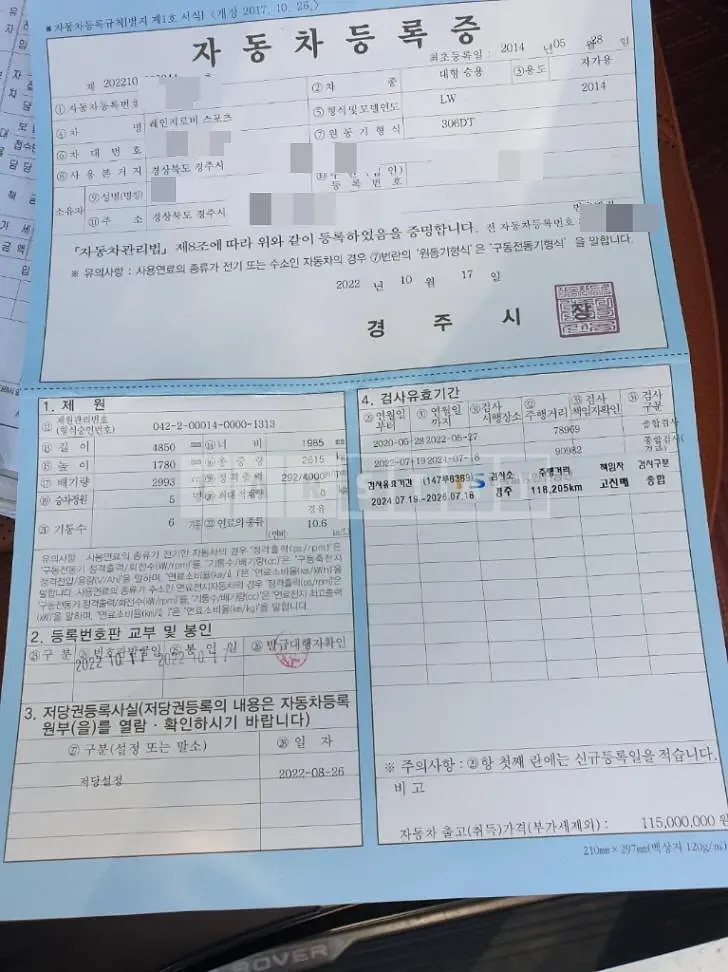 ■ 자동차등록규칙[별지 제1호 서식] <개정 2017. 10. 26.>
자 동 차 등 록 증
제 202210
최초등록일 : 2014 년 05 월 28 일
① 자동차등록번호
② 차 종 대형 승용 ③ 용도 자가용
④ 차 명 레인지로버 스포츠
⑤ 형식 및 모델연도 LW 2014
⑥ 차 대 번 호
⑦ 원 동 기 형 식 306DT
⑧ 사 용 본 거 지 경상북도 경주시
소유자 ⑨ 성명(명칭)
등 록 번 호
⑪ 주 소 경상북도 경주시
「자동차관리법」 제8조에 따라 위와 같이 등록하였음을 증명합니다. 전 자동차등록번호
※ 유의사항 : 사용연료의 종류가 전기 또는 수소인 자동차의 경우 ⑦번란의 '원동기형식'은 '구동전동기형식' 을 말합니다.
2022 년 10 월 17 일
경 주 시 장
1. 제 원
⑫ 제원관리번호 (형식승인번호) 042-2-00014-0000-1313
⑬ 길 이 4850 mm ⑭ 너 비 1985 mm
⑮ 높 이 1780 mm ⑯ 총 중 량 2615
⑰ 배기량 2993 cc ⑱ 정격출력 292/4000
⑲ 승차정원 5 명 ⑳ 최대적재량 0
㉑ 기통수 6 기통 ㉒ 연료의 종류 경유
(연비) 10.6
유의사항 사용연료의 종류가 전기인 자동차의 경우 '정격출력(ps/rpm)'은
'구동전동기 정격출력/회전수(kW/rpm)'를, '기통수/배기량(cc)'은 '구동축전지
정격전압/용량(V/Ah)'을 말하며, '연료소비율(km/ℓ)'은 '연료소비율(km/kWh)'을
말합니다. 사용연료의 종류가 수소인 연료전지자동차의 경우 '정격출력(ps/rpm)'은
'구동전동기 정격출력/회전수(kW/rpm)'를, '기통수/배기량(cc)'은 '연료전지 최고출력
(kW)'을 말하며, '연료소비율(km/ℓ)'은 '연료소비율(km/kg)'을 말합니다.
2. 등록번호판 교부 및 봉인
㉓ 구 분 ㉔ 번호판발급일 ㉕ 봉 인 일 ㉖ 발급대행자확인
2022 10. 17 2022 10. 17
3. 저당권등록사실(저당권등록의 내용은 자동차등록
원부(을)를 열람 · 확인하시기 바랍니다)
㉗ 구분(설정 또는 말소) ㉘ 일 자
저당설정 2022-08-26
4. 검사유효기간
㉙ 연월일 부터 ㉚ 연월일 까지 ㉛ 검사 시행장소 ㉜ 주행거리 ㉝ 검사 책임자확인 ㉞ 검사 구분
2020-05-28 2022-05-27 78969 종합검사
2022-07-19 2024-07-18 90982 종합검사(
검사유효기간 (147루8389) TS 검사소 주행거리 책임자 검사구분
2024.07.19~2026.07.18 경주 118,205km 고신배 종합
※ 주의사항 : ㉙항 첫째 란에는 신규등록일을 적습니다.
비 고
자동차 출고(취득)가격(부가세제외) : 115,000,000 원
210㎜×297㎜(백상지 120g/㎡)
ROVER